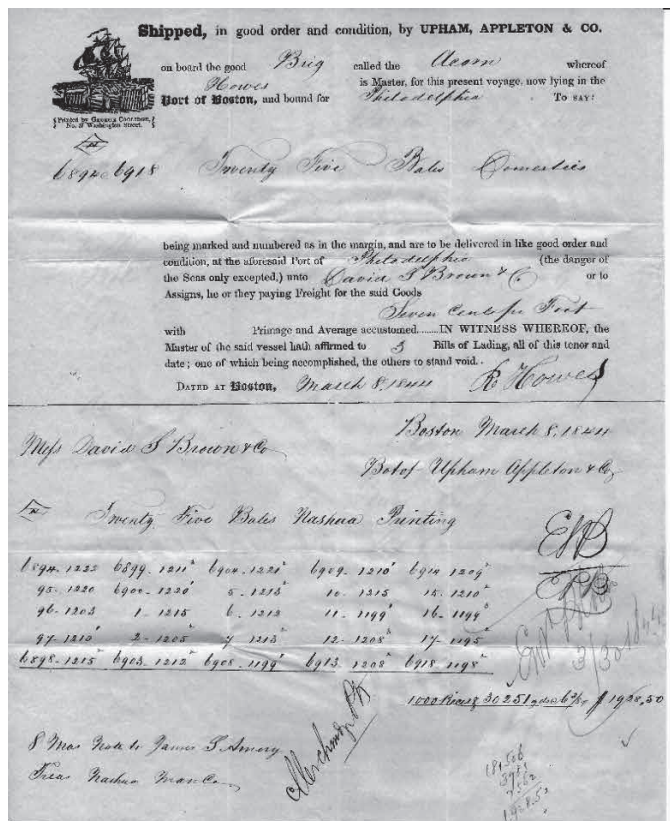 Shipped, in good order and condition, by UPHAM, APPLETON & CO.
on board the good Brig called the Acorn whereof
Howes is Master, for this present voyage, now lying in the
Port of Boston, and bound for Philadelphia . To SAY:
Printed by George Coolidge,
No. 57 Washington Street.
N
6894 @ 6918 Twenty Five Bales Domestics
being marked and numbered as in the margin, and are to be delivered in like good order and
condition, at the aforesaid Port of Philadelphia (the danger of
the Seas only excepted,) unto David S Brown & Co or to
Assigns, he or they paying Freight for the said Goods
Seven Cents per Foot
with Primage and Average accustomed......IN WITNESS WHEREOF, the
Master of the said vessel hath affirmed to 3 Bills of Lading, all of this tenor and
date; one of which being accomplished, the others to stand void..
DATED AT Boston, March 8, 1844 R Howes
Boston March 8, 1844
Mess David S Brown & Co
Bot of Upham Appleton & Co
N
Twenty Five Bales Nashua Printing
6894 - 1222 6899 - 1211² 6904 - 1221² 6909 - 1210² 6914 1209²
95 - 1220 6900 - 1220² 5 - 1213² 10 - 1215 15 - 1210²
96 - 1203 1 - 1215 6 - 1213 11 - 1199² 16 - 1199²
97 - 1210² 2 - 1205² 7 1213² 12 - 1208² 17 - 1195²
6898 - 1215² 6903 - 1212² 6908 - 1199² 6913 - 1208² 6918 - 1198²
EWB
3/30 1844
1000 Pieces 30251 yds @ 6 3/8 $ 1928,50
8 Mos Note to James S Amory
Treas Nashua Man Co